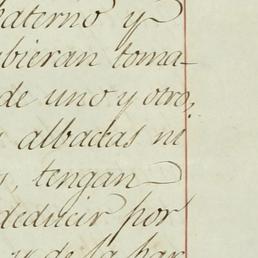 paterno y
ubieran toma-
de uno y otro,
albaceas ni
tengan
deducir por
y de la par